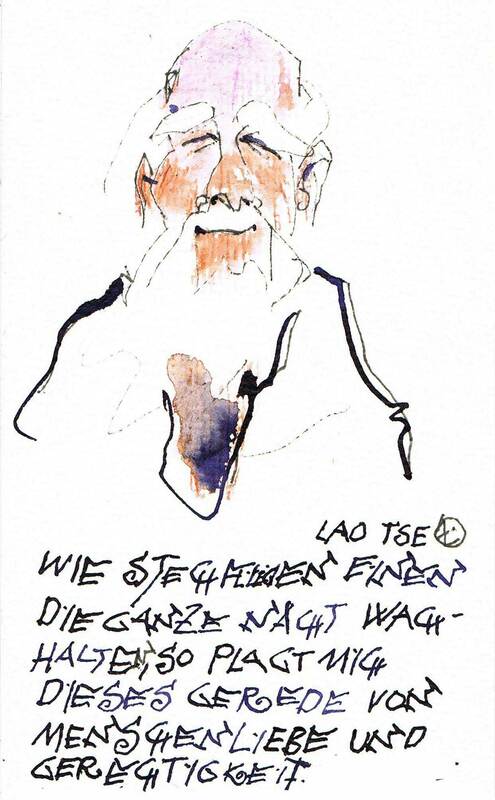 LAO TSE
WIE EINEN
DIE GANZE NACHT WACH-
HALTEN, SO PLAGT MICH
DIESES GEREDE VON
MENSCHENLIEBE UND
GERECHTIGKEIT.